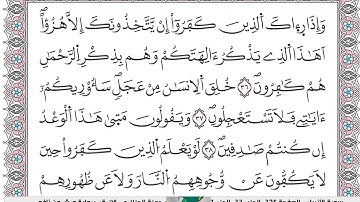 وَإِذَا رِءَاكَ اَلذِينَ كَفَرُوٓاْ إِنْ يَّتَّخِذُونَكَ إِلَّا هُزُؤاً
اَهَٰذَا اَلذِے يَذْكُرُ ءَالِهَتَكُمْ وَهُم بِذِكْرِ اِلرَّحْمَٰنِ
هُمْ كَٰفِرُونَۖ ٣٦ خُلِقَ اَلِانسَٰنُ مِنْ عَجَلٖۖ سَأُوْرِيكُمُۥٓ
ءَايَٰتِے فَلَا تَسْتَعْجِلُونِۖ ٣٧ وَيَقُولُونَ مَتَىٰ هَٰذَا اَلْوَعْدُ
إِن كُنتُمْ صَٰدِقِينَۖ ٣٨ لَوْ يَعْلَمُ اُلذِينَ كَفَرُواْ حِينَ
لَا يَكُفُّونَ عَن وُجُوهِهِمُ اُلنَّارَ وَلَا عَن ظُهُورِهِمْ